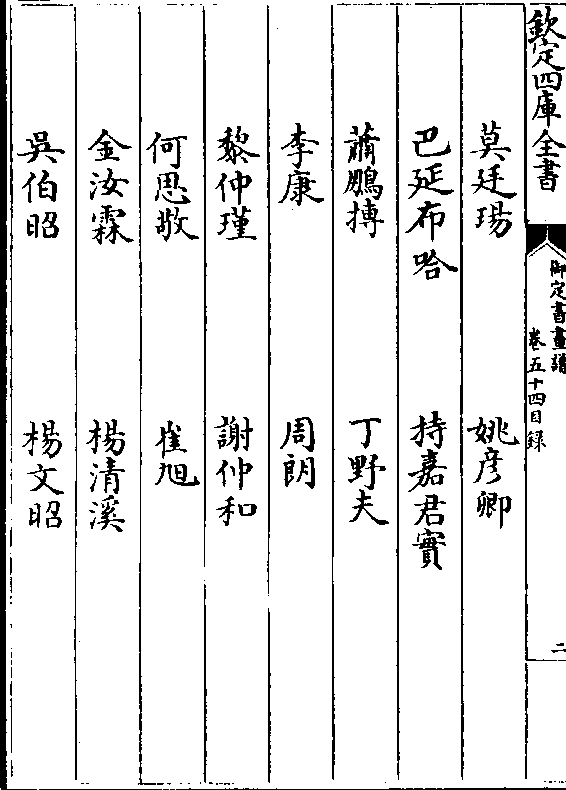 欽定四庫全書
御定書畫譜
卷五十四目録
二
莫廷瑒 姚彦卿
巴延布哈 持嘉君實
蕭鵬摶 丁野夫
李康 周朗
黎仲瑾 謝仲和
何思敬 崔旭
金汝霖 楊清溪
吳伯昭 楊文昭